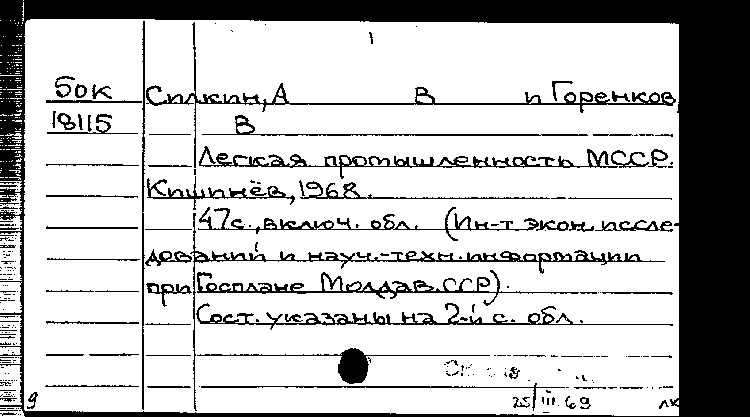 1
Бок Силкин, А В и Горенков,
18115 В
Легкая промышленность МССР.
Кишинёв, 1968.
47с., включ. обл. (Ин-т экон. иссле-
дований и науч.-техн. информации
при Госплане Молдав. ССР).
Сост. указаны на 2-й с. обл.
25/III.69 лк
9